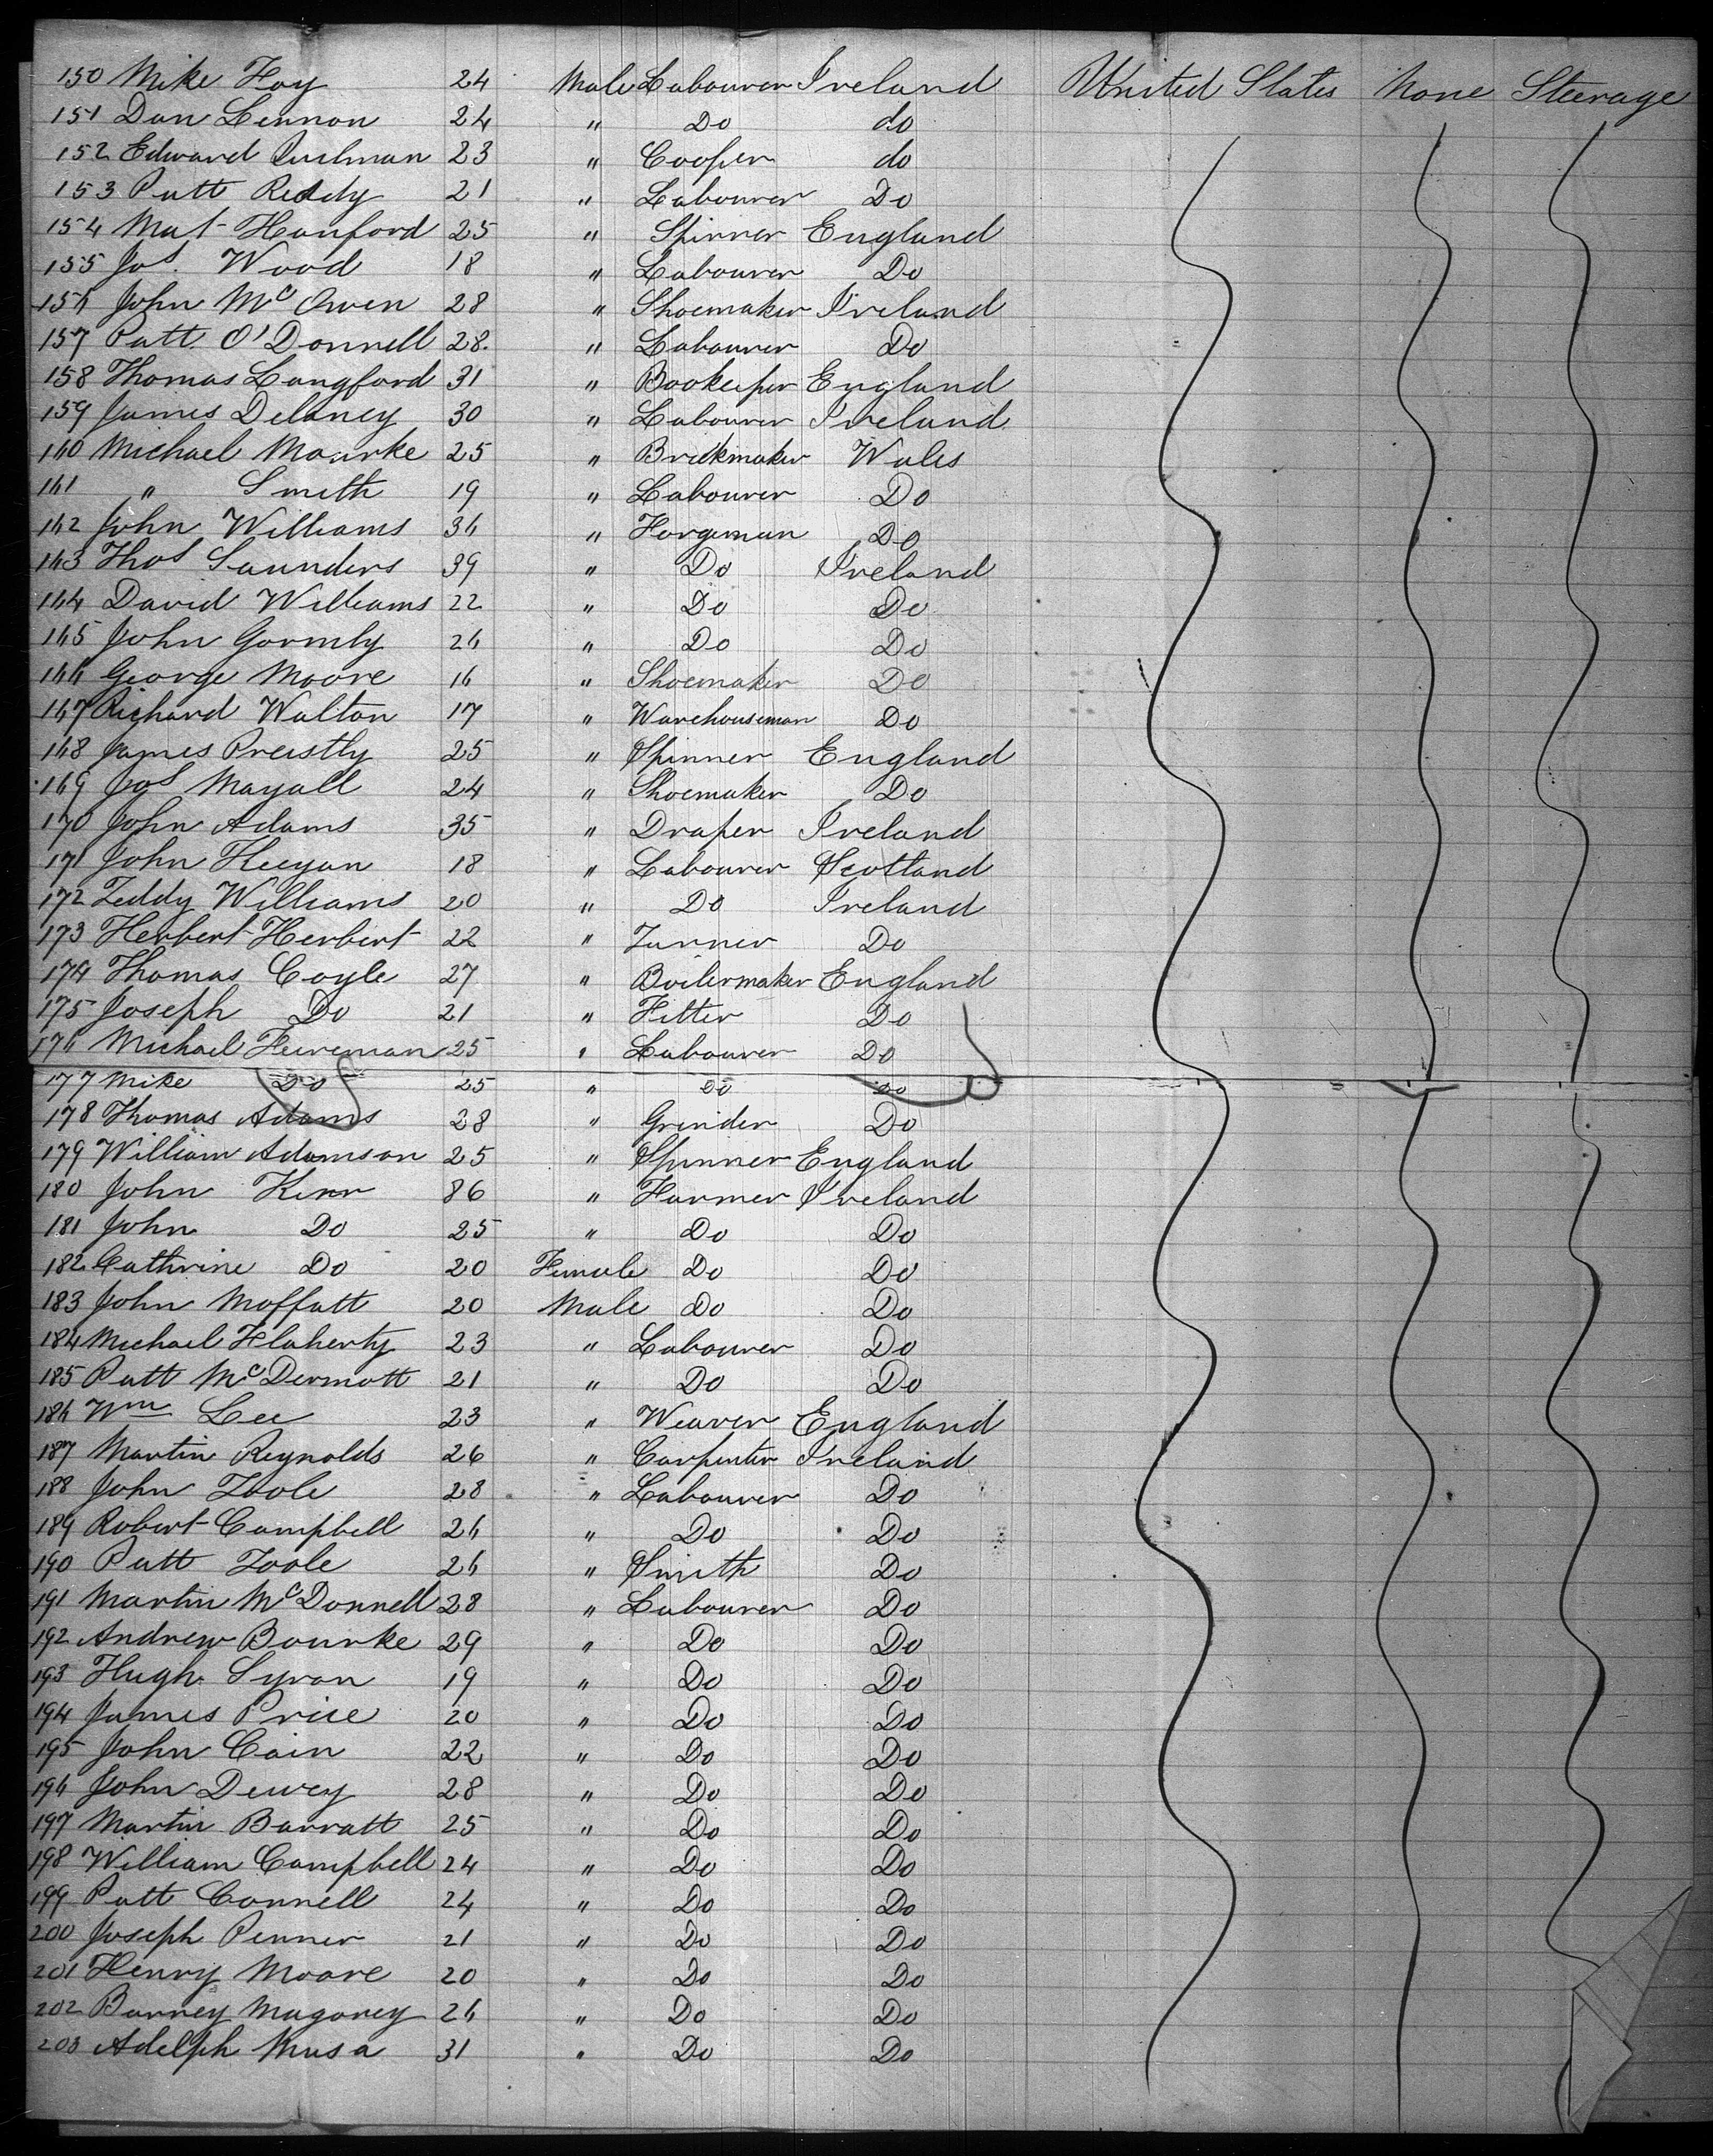 150 Mike Foy 24 Male Labourer Ireland United States None Steerage
151 Dan Lennon 24 " Do do
152 Edward 23 " Cooper do
153 Patt Reddy 21 " Labourer Do
154 Mat Hanford 25 " Spinner England
155 Jos. Wood 18 " Labourer Do
156 John McOwen 28 " Shoemaker Ireland
157 Patt. O'Donnell 28. " Labourer Do
158 Thomas Langford 31 " Bookeeper England
159 James Delaney 30 " Labourer Ireland
160 Michael Mourke 25 " Brickmaker Wales
161 " Smith 19 " Labourer Do
162 John Williams 36 " Forgeman Do
163 Thos Saunders 39 " Do Ireland
164 David Williams 22 " Do Do
165 John Gormly 26 " Do Do
166 George Moore 16 " Shoemaker Do
167 Richard Walton 17 " Warehouseman Do
168 James Preastly 25 " Spinner England
169 Jos Mayall 24 " Shoemaker Do
170 John Adams 35 " Draper Ireland
171 John Keegan 18 " Labourer Scotland
172 Teddy Williams 20 " Do Ireland
173 Herbert Herbert 22 " Turner Do
174 Thomas Coyle 27 " Boilermaker England
175 Joseph Do 21 " Fitter Do
176 Michael 25 " Labourer Do
177 Mike Do 25 " Do Do
178 Thomas Adams 28 " Grinder Do
179 William Adamson 25 " Spinner England
180 John Kerr 86 " Farmer Ireland
181 John Do 25 " Do Do
182 Cathrine Do 20 Female Do Do
183 John Moffatt 20 Male Do Do
184 Michael Flaherty 23 " Labourer Do
185 Patt McDermott 21 " Do Do
186 Wm Lee 23 " Weaver England
187 Martin Reynolds 26 " Carpenter Ireland
188 John Toole 28 " Labourer Do
189 Robert Campbell 26 " Do Do
190 Patt Toole 26 " Smith Do
191 Martin McDonnell 28 " Labourer Do
192 Andrew Bourke 29 " Do Do
193 Hugh Syron 19 " Do Do
194 James Price 20 " Do Do
195 John Cain 22 " Do Do
196 John Dewey 28 " Do Do
197 Martin Barratt 25 " Do Do
198 William Campbell 24 " Do Do
199 Patt Connell 24 " Do Do
200 Joseph Penner 21 " Do Do
201 Henry Moore 20 " Do Do
202 Barney Magorey 26 " Do Do
203 Adelph Musa 31 " Do Do